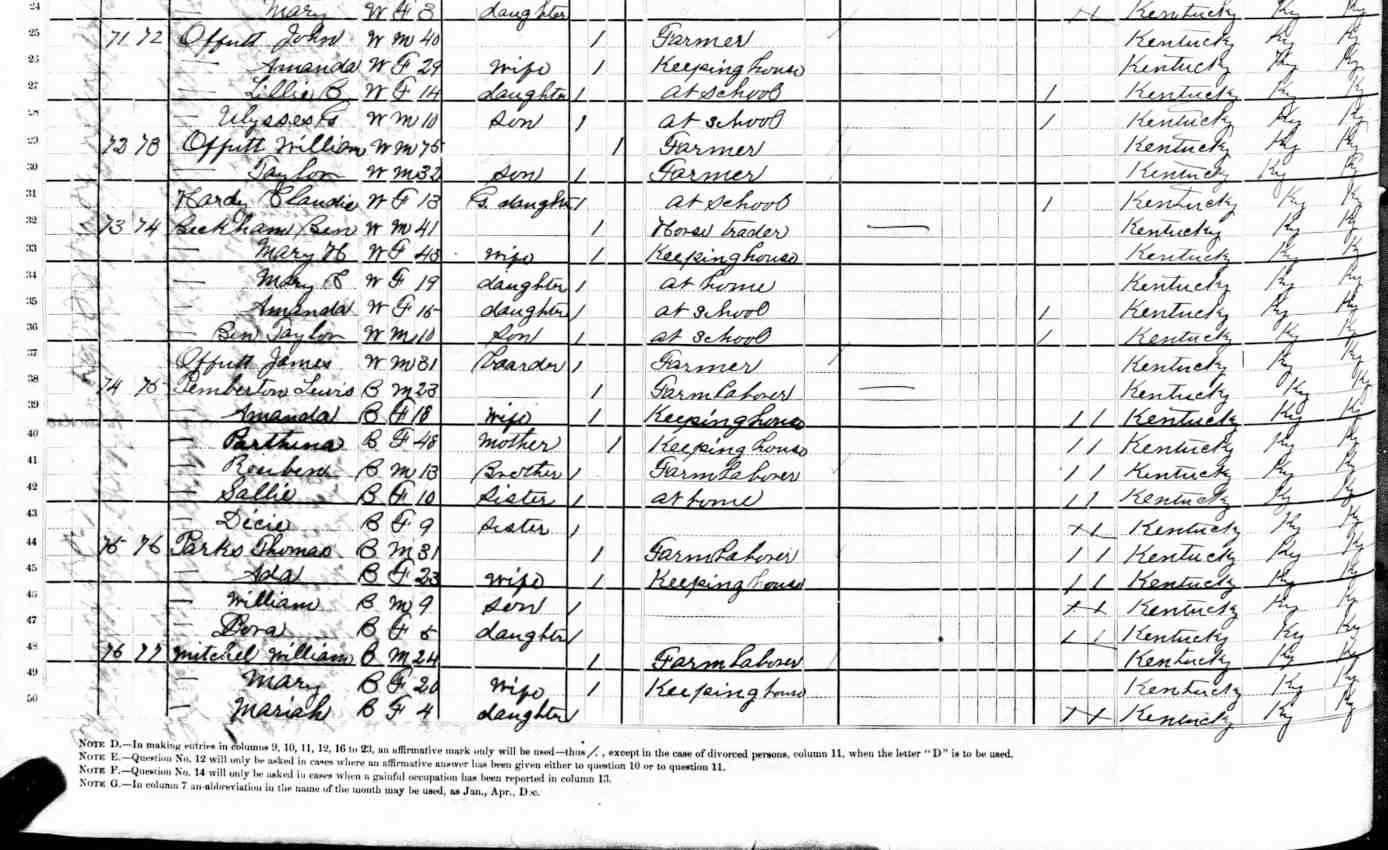 24 Mary W F 3 daughter Kentucky Ky Ky
25 71 72 Offutt John W M 40 / Farmer Kentucky Ky Ky
26 — Amanda W F 29 wife / Keeping house Kentucky Ky Ky
27 — Lillie B W F 14 daughter / at school / Kentucky Ky Ky
28 — Ulysses G W M 10 son / at school / Kentucky Ky Ky
29 72 73 Offutt William W M 75 / Farmer Kentucky Ky Ky
30 — Taylor W M 32 son / Farmer Kentucky Ky Ky
31 Hardy Claudie W F 13 G. daughter / at school / Kentucky Ky Ky
32 73 74 Beckham Ben W M 41 / Horse trader — Kentucky Ky Ky
33 — Mary H W F 45 wife / Keeping house Kentucky Ky Ky
34 — Mary C W F 19 daughter / at home Kentucky Ky Ky
35 — Amanda W F 15 daughter / at school / Kentucky Ky Ky
36 — Ben Taylor W M 10 son / at school / Kentucky Ky Ky
37 Offutt James W M 31 boarder / Farmer Kentucky Ky Ky
38 74 75 Pemberton Lewis B M 23 / Farm Laborer — Kentucky Ky Ky
39 — Amanda B F 18 wife / Keeping house / / Kentucky Ky Ky
40 — Parthina B F 48 mother / Keeping house / / Kentucky Ky Ky
41 — Reubin B M 13 Brother / Farm Laborer / / Kentucky Ky Ky
42 — Sallie B F 10 sister / at home / / Kentucky Ky Ky
43 — Dicie B F 9 sister / Kentucky Ky Ky
44 75 76 Parks Thomas B M 31 / Farm Laborer / / Kentucky Ky Ky
45 — Ada B F 23 wife / Keeping house / / Kentucky Ky Ky
46 — William B M 9 son / Kentucky Ky Ky
47 — Dora B F 5 daughter / Kentucky Ky Ky
48 76 77 Mitchel William B M 24 / Farm Laborer Kentucky Ky Ky
49 — Mary B F 20 wife / Keeping house Kentucky Ky Ky
50 — Mariah B F 4 daughter / Kentucky Ky Ky
NOTE D.—In making entries in columns 9, 10, 11, 12, 16 to 23, an affirmative mark only will be used—thus /. , except in the case of divorced persons, column 11, when the letter "D" is to be used.
NOTE E.—Question No. 12 will only be asked in cases where an affirmative answer has been given either to question 10 or to question 11.
NOTE F.—Question No. 14 will only be asked in cases when a gainful occupation has been reported in column 13.
NOTE G.—In column 7 an abbreviation in the name of the month may be used, as Jan., Apr., Dec.